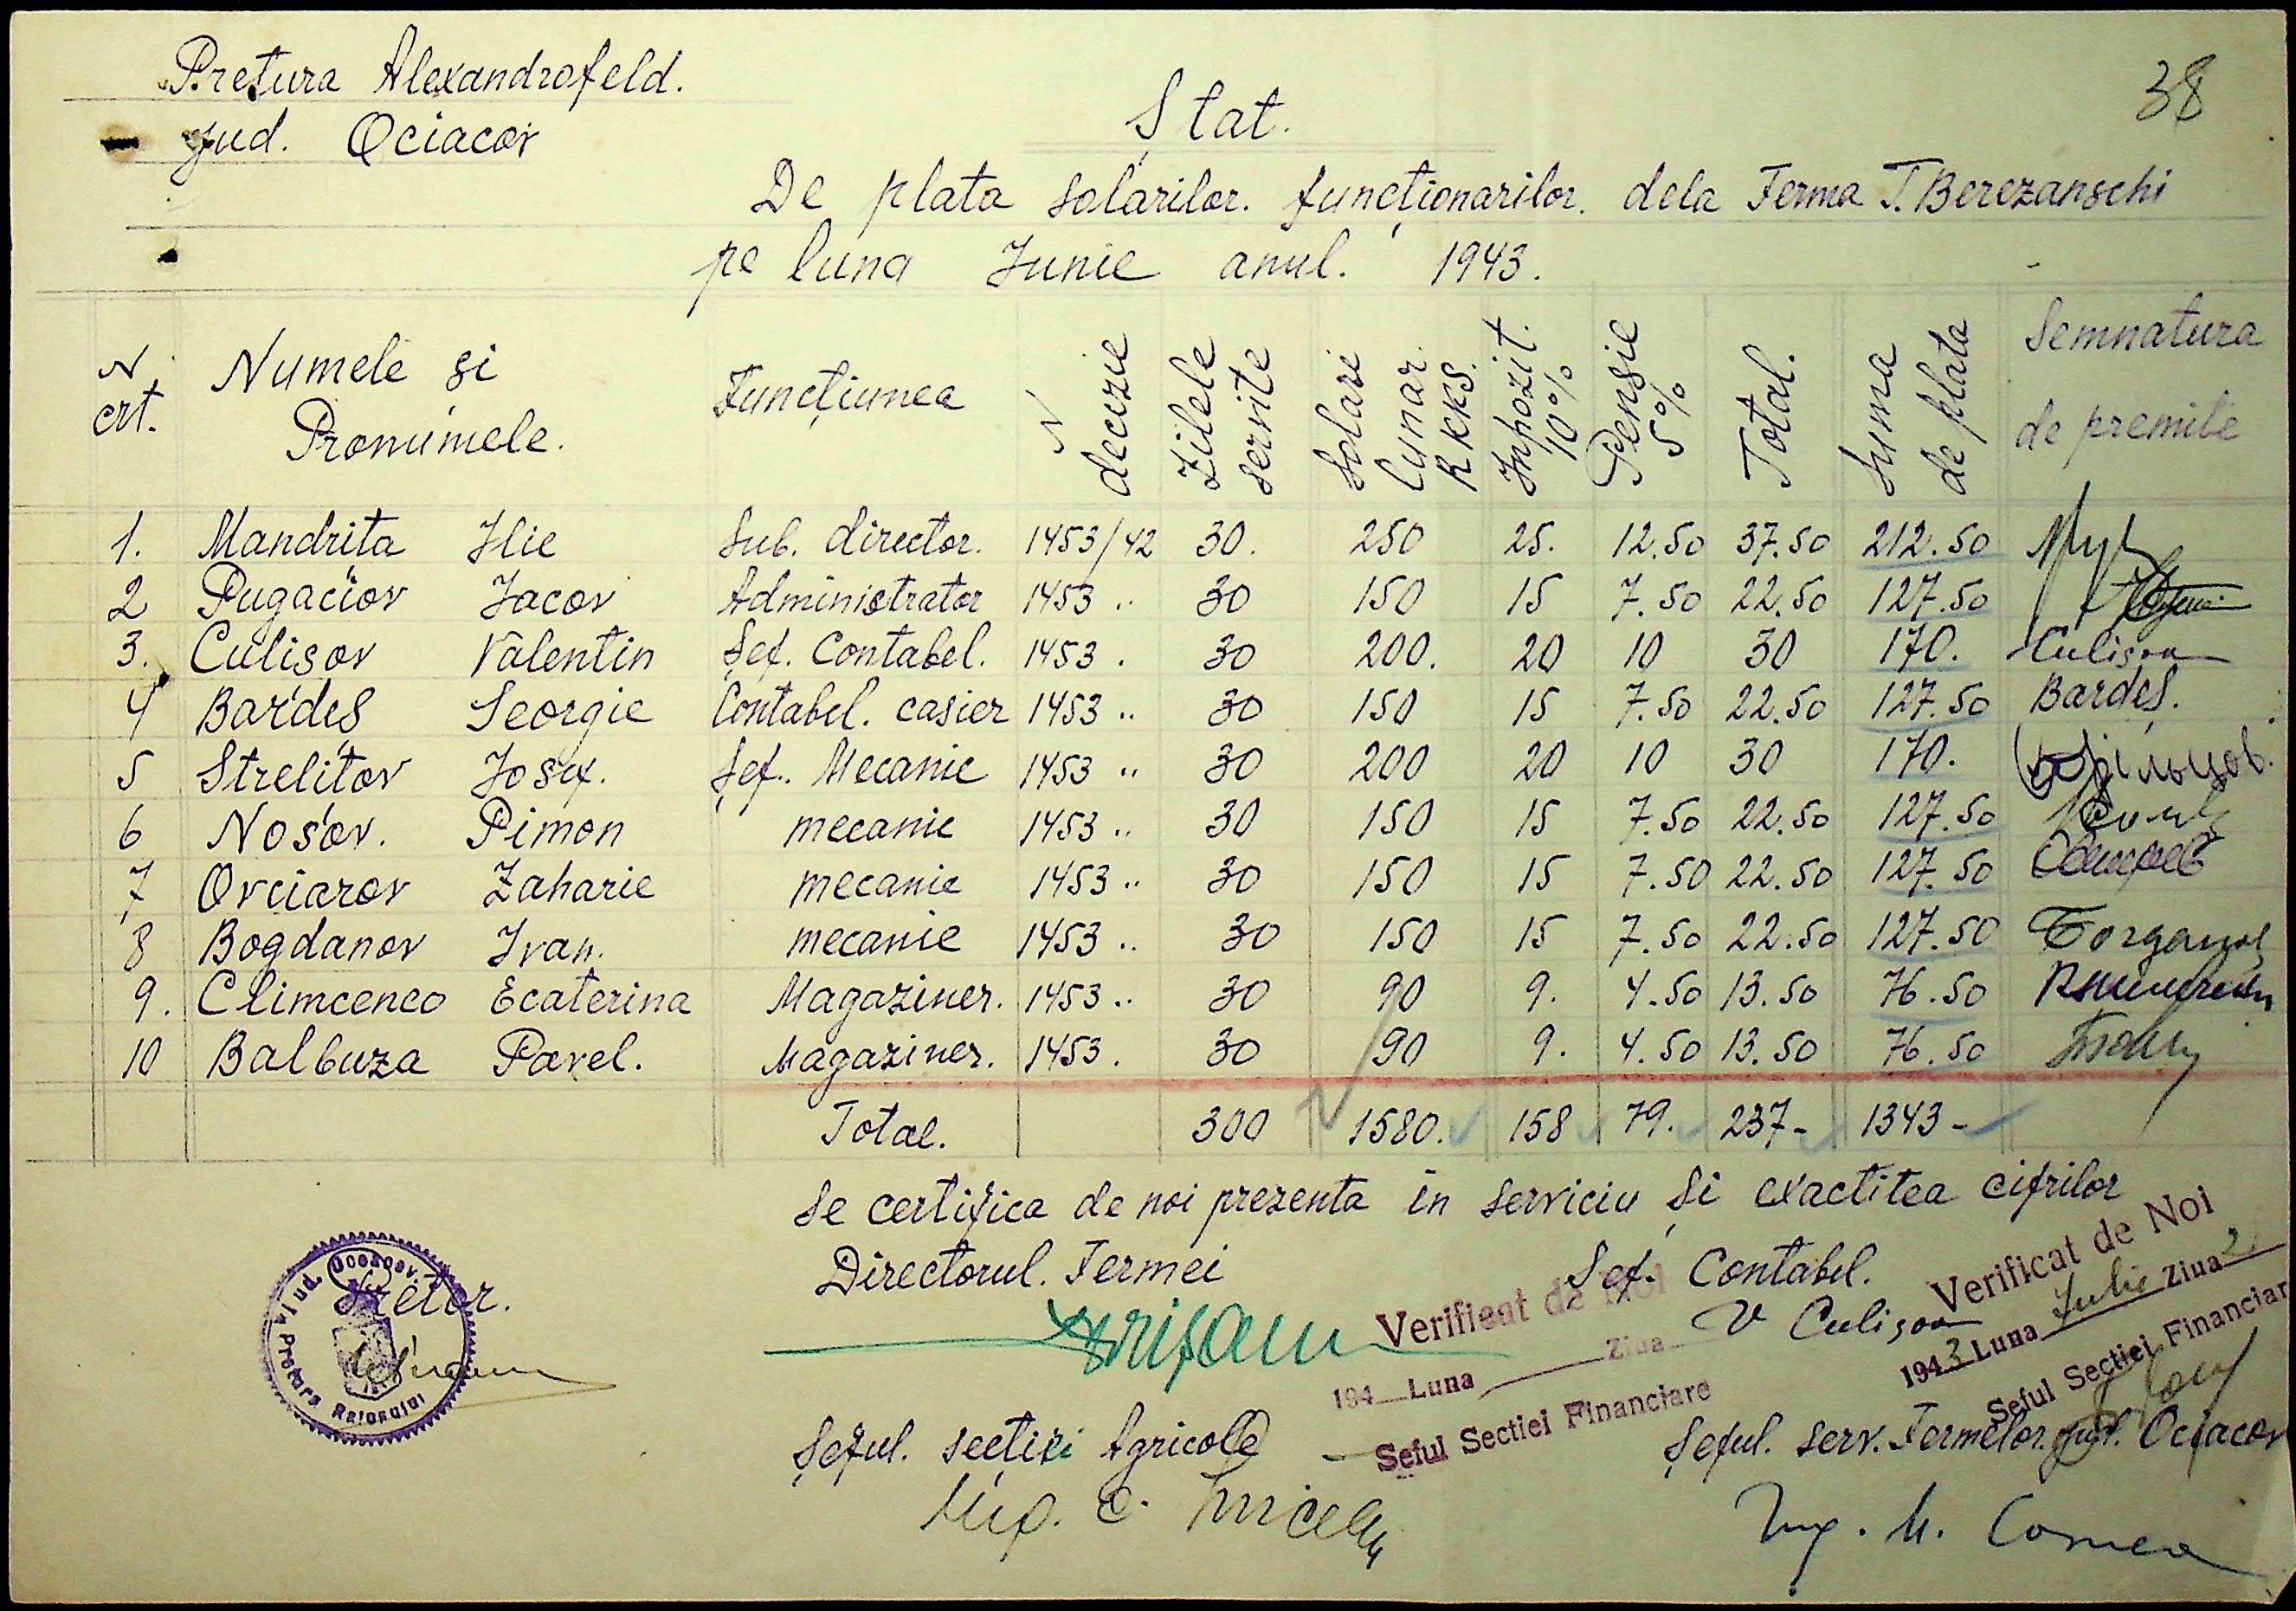 Pretura Alexandrofeld.
jud. Ociacov
38
Ştat.
De plata solarilor. funcţionarilor. dela Ferma T. Berezanschi
pe luna Junie anul. 1943.
N crt. Numele şi Pronumele. Funcţiunea N decizie Zilele servite Solarii lunar. RKKS. Inpozit. 10% Pensie 5% Total. Suma de plata Semnatura de premile
1. Mandrita Ilie Sub. director. 1453/42 30. 250 25. 12.50 37.50 212.50
2 Pugaciov Jacov Administrator 1453 .. 30 150 15 7.50 22.50 127.50
3. Culisov Valentin Şef. Contabel. 1453 . 30 200. 20 10 30 170. Culisov
4 Bardeş Georgie Contabel. casier 1453 .. 30 150 15 7.50 22.50 127.50 Bardeş.
5 Strelitov Josif. Şef. Mecanic 1453 .. 30 200 20 10 30 170.
6 Nosov. Pimon mecanic 1453 .. 30 150 15 7.50 22.50 127.50
7 Ovciarov Zaharie mecanic 1453 .. 30 150 15 7.50 22.50 127.50
8 Bogdanov Ivan. mecanic 1453 .. 30 150 15 7.50 22.50 127.50
9. Climcenco Ecaterina Magaziner. 1453 .. 30 90 9. 4.50 13.50 76.50
10 Balbuza Pavel. Magaziner. 1453 . 30 90 9. 4.50 13.50 76.50
Total. 300 1580. 158 79. 237- 1343-
Se certifica de noi prezenta în serviciu şi exactitea cifrilor
Directorul. Fermei
Şef. Contabel.
V Culisov
Pretor.
Pretura Raionului
Verificat de Noi
194 Luna Ziua
Seful Sectiei Financiare
Verificat de Noi
1943 Luna Julie Ziua 2
Seful Sectiei Financiare
Şeful. secţiei Agricole
Şeful. serv. Fermelor. jud. Ociacov
Ing. M. Cornea